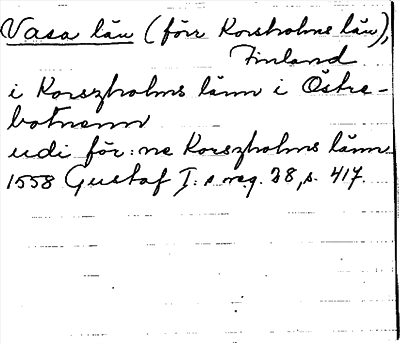 Vasa län (förr Korsholms län),
Finland
i Korszholms länn i Östre-
botnenn
udi för:ne Korszholms länn
1558 Gustaf I:s reg. 28, s. 417.